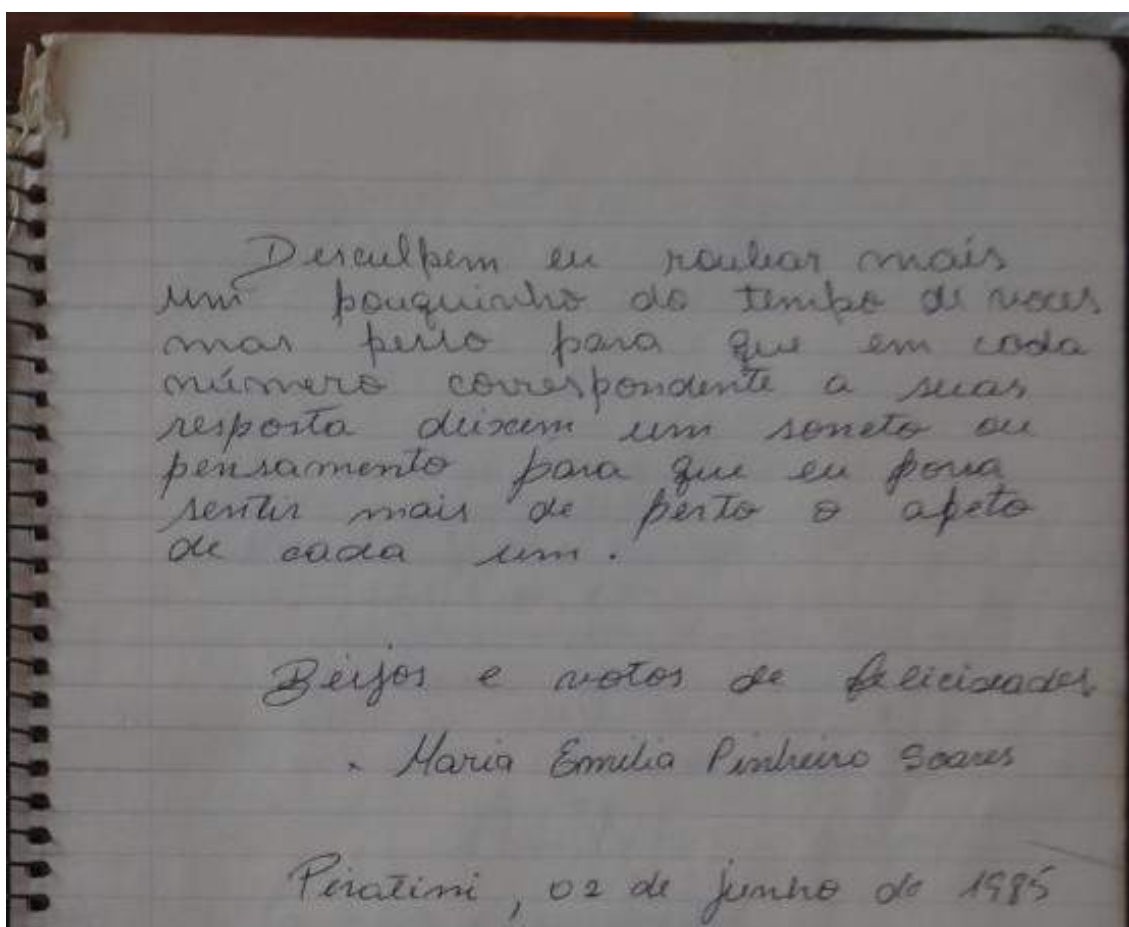 Desculpem eu roubar mais
um pouquinho do tempo de voces
mas peço para que em cada
número correspondente a suas
resposta deixem um soneto ou
pensamento para que eu possa
sentir mais de perto o afeto
de cada um.
Beijos e votos de felicidades
Maria Emilia Pinheiro Soares
Piratini, 02 de junho de 1985